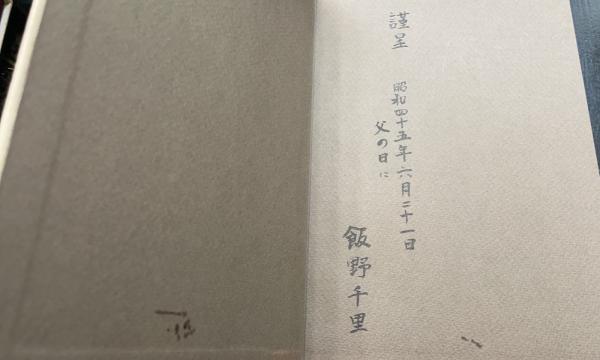 謹呈
昭和四十五年六月二十一日
父の日に
飯野千里